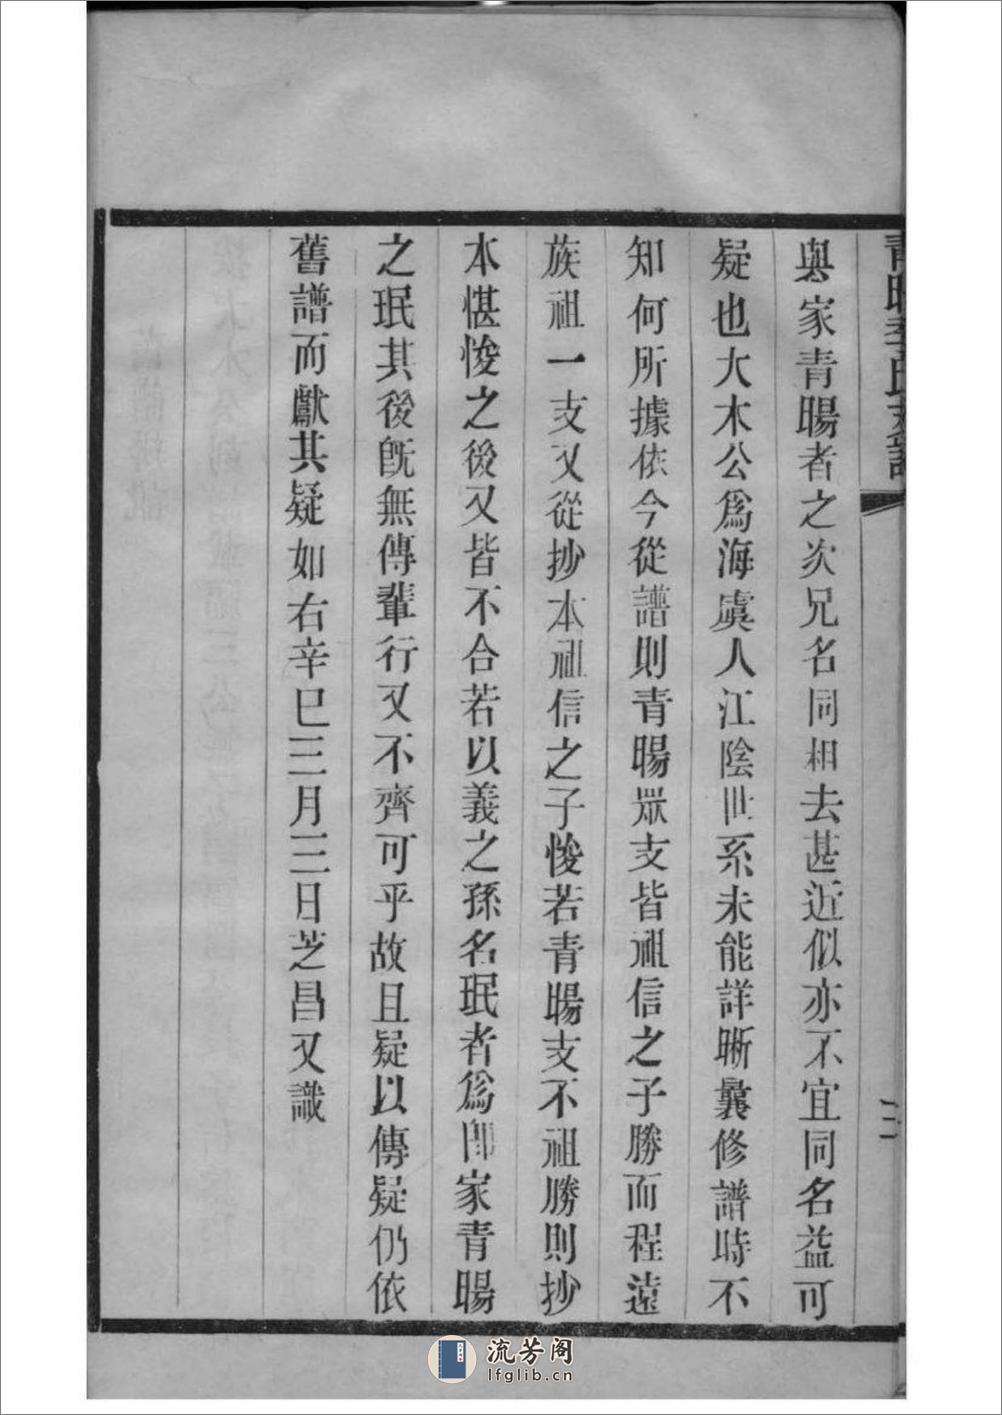 青暘李氏支譜
三
與家青暘者之次兄名同相去甚近似亦不宜同名益可
疑也大木公爲海虞人江陰世系未能詳晰曩修譜時不
知何所據依今從譜則青暘眾支皆祖信之子勝而程遠
族祖一支又從抄本祖信之子悛若青暘支不祖勝則抄
本愖悛之後又皆不合若以義之孫名珉者爲卽家青暘
之珉其後旣無傳輩行又不齊可乎故且疑以傳疑仍依
舊譜而獻其疑如右辛巳三月三日芝昌又識
流芳阁
lfglib.cn